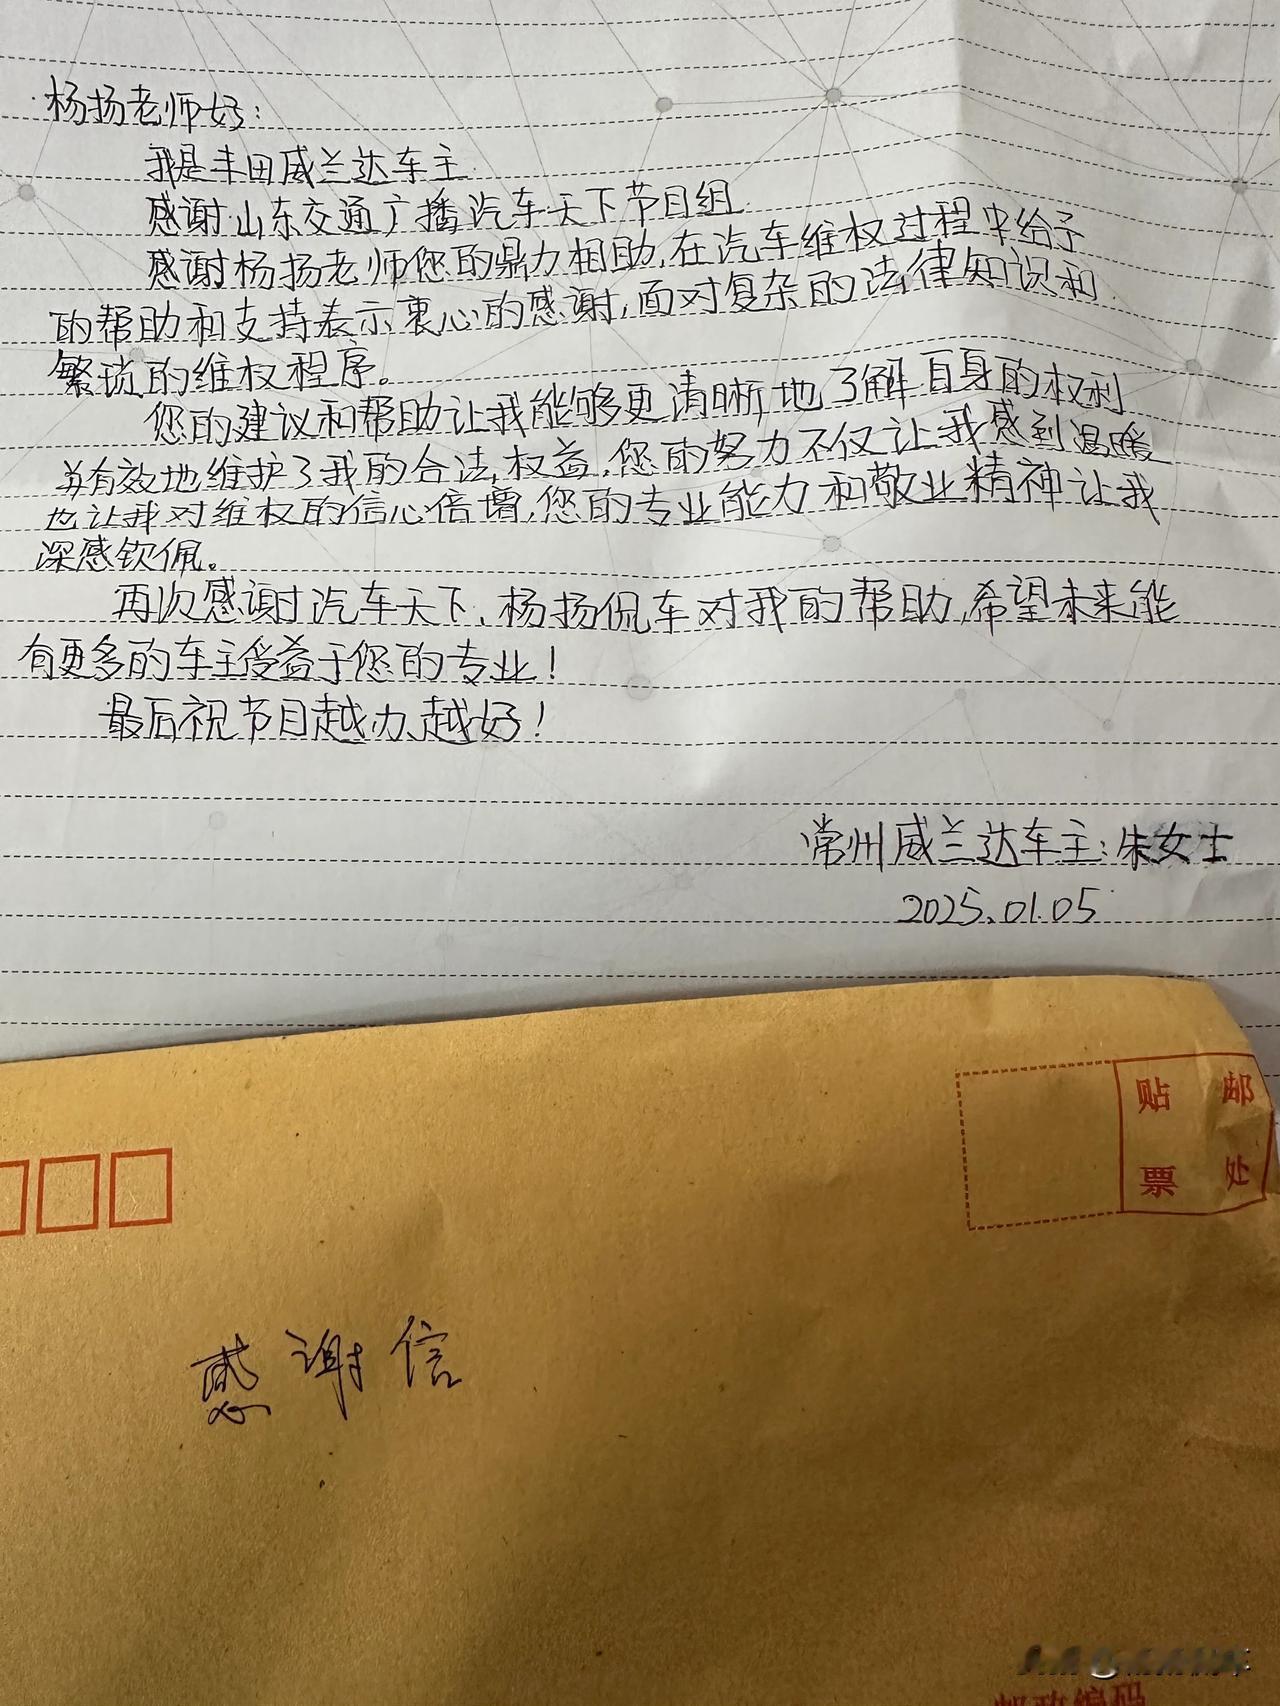 杨扬老师好：
我是丰田威兰达车主
感谢山东交通广播汽车天下节目组
感谢杨扬老师您的鼎力相助,在汽车维权过程中给予
的帮助和支持表示衷心的感谢,面对复杂的法律知识和
繁琐的维权程序。
您的建议和帮助让我能够更清晰地了解自身的权利
并有效地维护了我的合法权益,您的努力不仅让我感到温暖
也让我对维权的信心倍增,您的专业能力和敬业精神让我
深感钦佩。
再次感谢汽车天下、杨扬侃车对我的帮助,希望未来能
有更多的车主受益于您的专业！
最后祝节目越办越好！
常州威兰达车主：朱女士
2025.01.05
贴 邮
票 处
感谢信
邮政编码